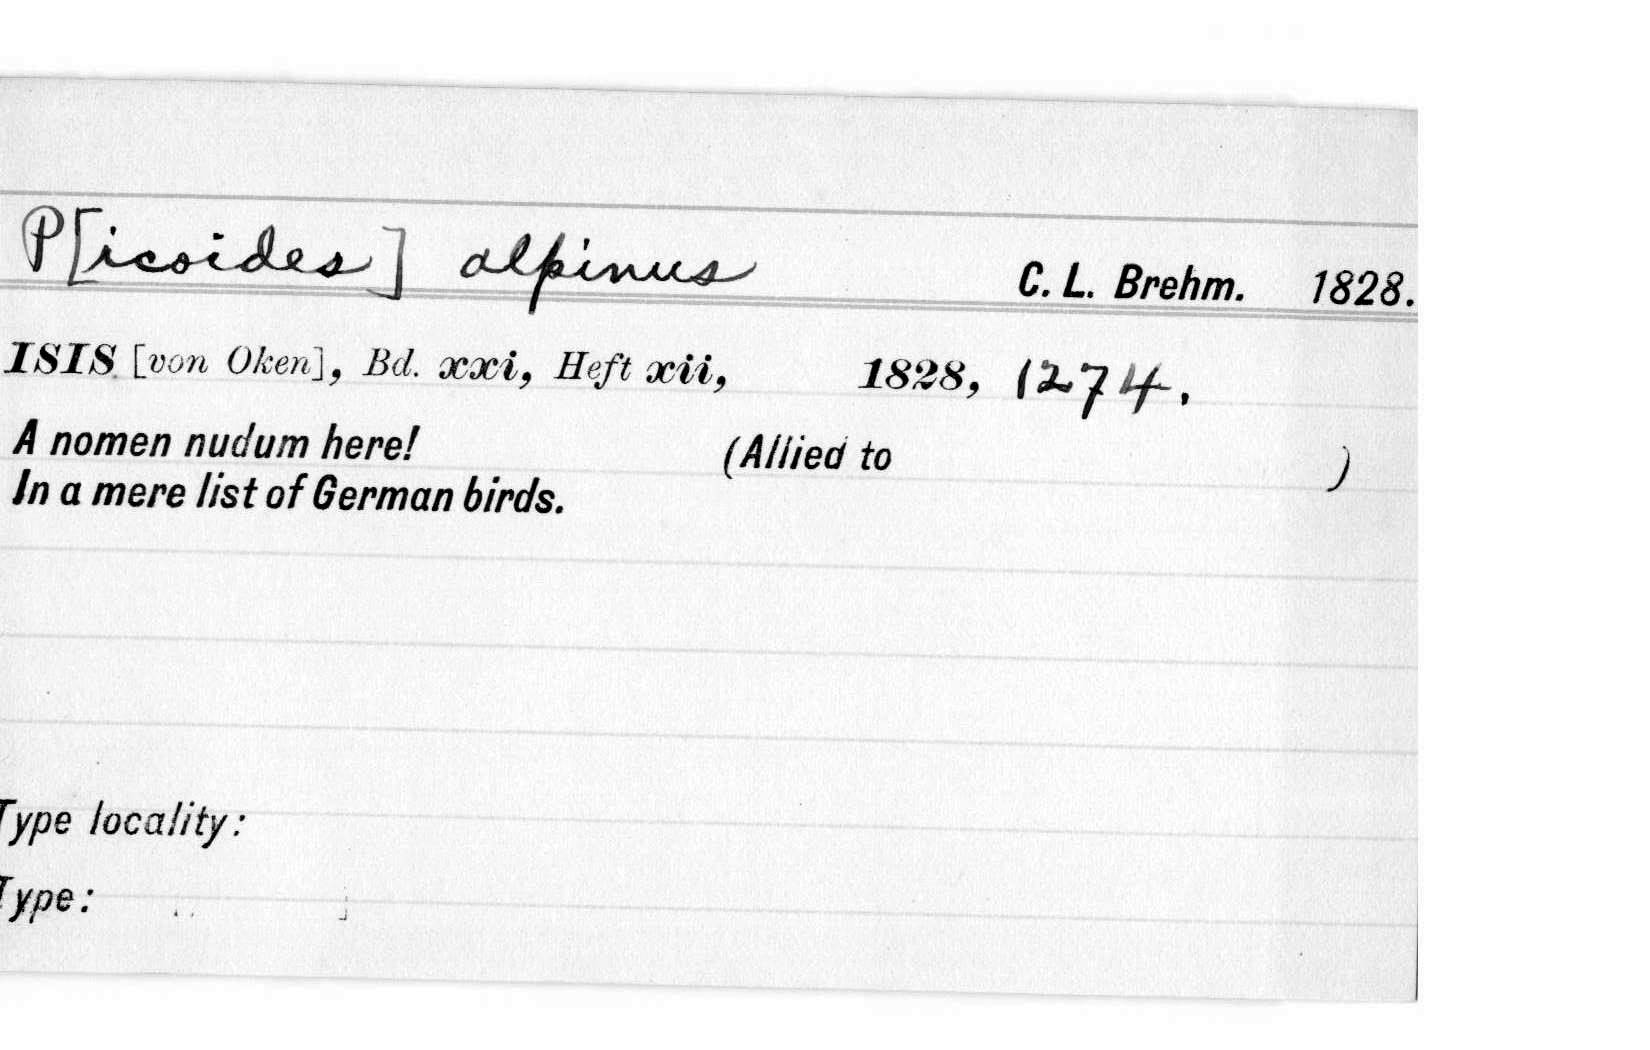 P[icoides] alpinus C. L. Brehm. 1828.
ISIS [von Oken], Bd. xxi, Heft xii, 1828, 1274.
A nomen nudum here! (Allied to )
In a mere list of German birds.
Type locality:
Type: